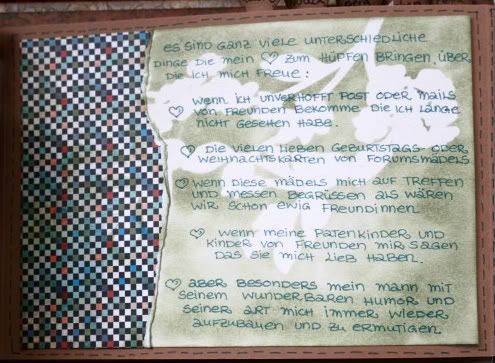 es sind ganz viele unterschiedliche
Dinge die mein ♡ zum hüpfen bringen, über
die ich mich freue:
♡ wenn ich unverhofft Post oder Mails
von Freunden bekomme die ich lange
nicht gesehen habe.
♡ Die vielen lieben Geburtstags- oder
Weihnachtskarten von Forumsmädels
♡ wenn diese Mädels mich auf Treffen
und Messen begrüssen als wären
wir schon ewig Freundinnen.
♡ wenn meine Patenkinder und
Kinder von Freunden mir sagen
das sie mich lieb haben.
♡ aber besonders mein Mann mit
seinem wunderbaren Humor und
seiner Art mich immer wieder
aufzubauen und zu ermutigen.